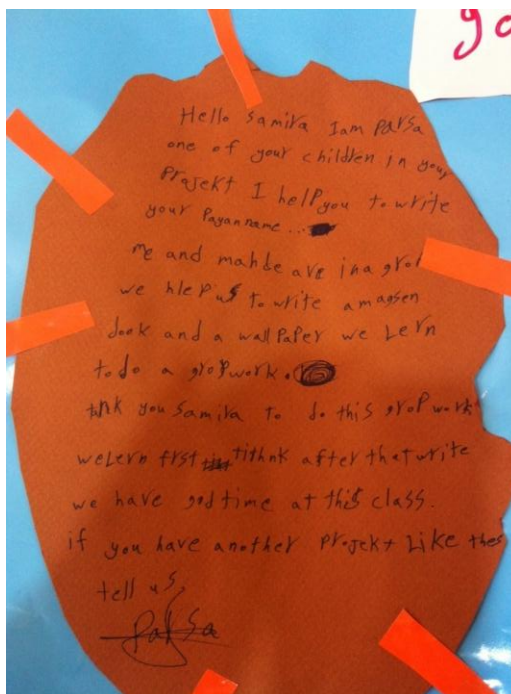 go
Hello Samira Iam Parsa
one of your children in your
Projekt I help you to write
your Payanname...
me and mahde are in a grop
we hlep us to write a magsen
dook and a wall Paper we Lern
to do a gropwork.
tnk you Samira to do this grop work
we Lern frst tithnk after that write
we have god time at this class.
if you have another Projekt Like thes
tell us.
Parsa